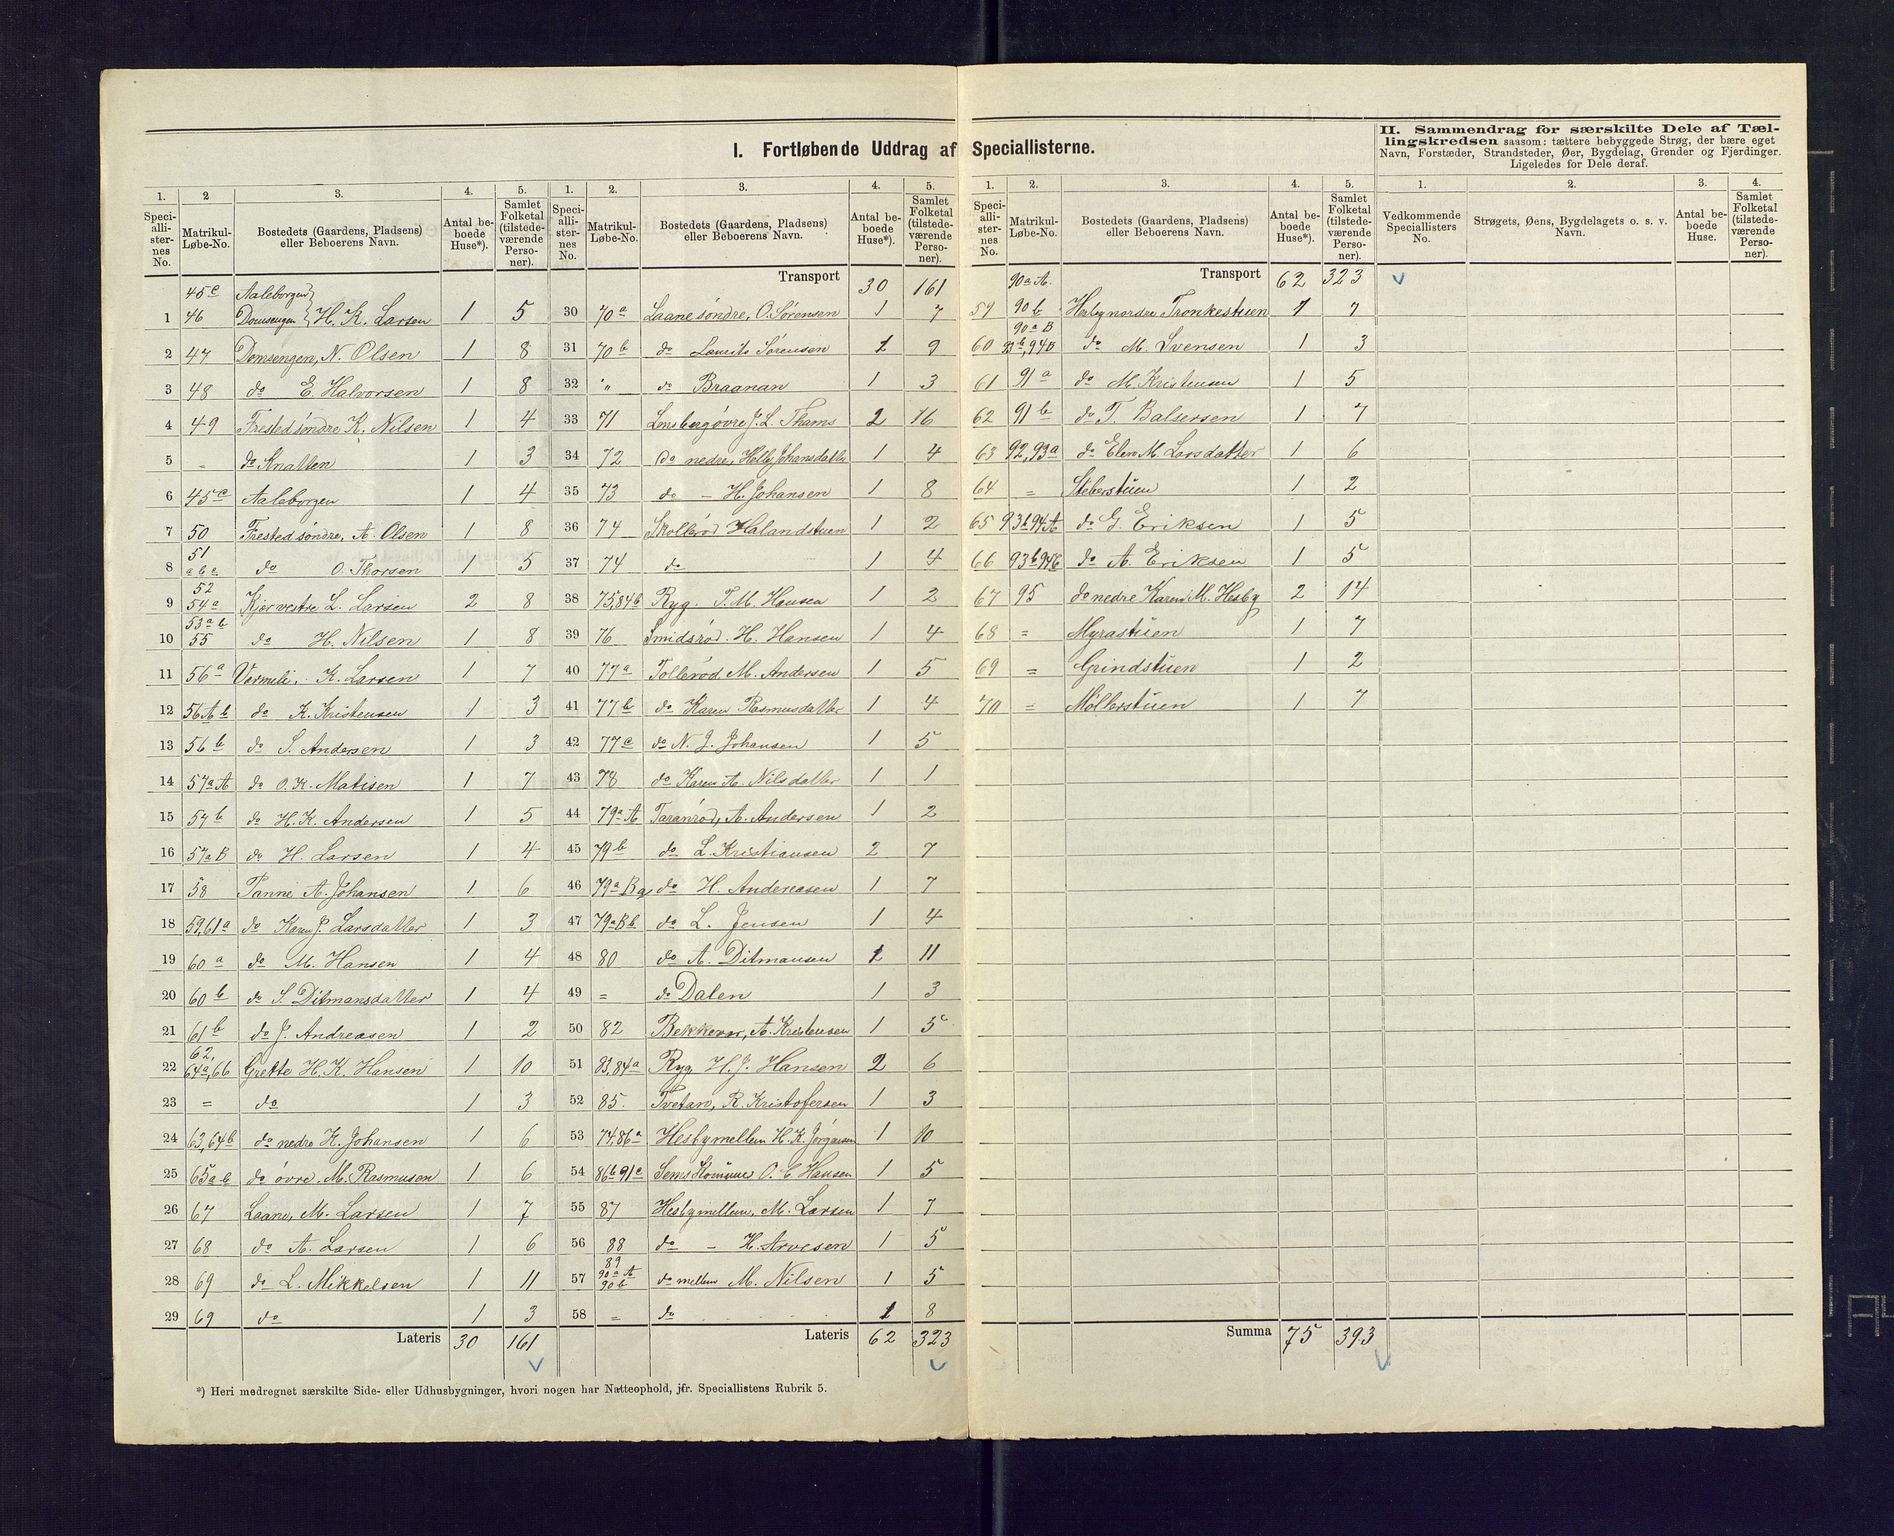 I. Fortløbende Uddrag af Speciallisterne.
II. Sammendrag for særskilte Dele af Tæl-
lingskredsen saasom: tættere bebyggede Strøg, der bære eget
Navn, Forstæder, Strandsteder, Øer, Bygdelag, Grender og Fjerdinger.
Ligeledes for Dele deraf.
1. 2 3. 4. 5.
Speciallisternes No. Matrikul-Løbe-No. Bostedets (Gaardens, Pladsens) eller Beboerens Navn. Antal beboede Huse*). Samlet Folketal (tilstedeværende Personer).
45c Aaleborgen
1 46 Domsengen H. K. Larsen 1 5
2 47 Domsengen, N. Olsen 1 8
3 48 do E. Halvorsen 1 8
4 49 Frestedsøndre K. Nilsen 1 4
5 - do Knatten 1 3
6 45c Aaleborgen 1 4
7 50 Frestedsøndre, A. Olsen 1 8
51
8 a b c do O. Thorsen 1 5
52
9 54a Kjær vestre L. Larsen 2 8
53a b
10 55 do H. Nilsen 1 8
11 56a Vermeli, K. Larsen 1 7
12 56A b do K. Kristensen 1 3
13 56b do S. Andersen 1 3
14 57a A do O. K. Matisen 1 7
15 57b do H. K. Andersen 1 5
16 57a B do H. Larsen 1 4
17 58 Tanne A. Johansen 1 6
18 59,61a do Karen J. Larsdatter 1 3
19 60a do M. Hansen 1 4
20 60b do S. Ditmansdatter 1 4
21 61b do J. Andreasen 1 2
62,
22 64a,66 Grette H. K. Hansen 1 10
23 = do 1 3
24 63,64b do nedre K. Johansen 1 6
25 65a-b do øvre M. Rasmusen 1 6
26 67 Laane, M. Larsen 1 7
27 68 do A. Larsen 1 6
28 69 do L. Mikkelsen 1 11
29 69 do 1 3
Lateris 30 161
*) Heri medregnet særskilte Side- eller Udhusbygninger, hvori nogen har Natteophold, jfr. Speciallistens Rubrik 5.
1. 2. 3. 4. 5.
Speciallisternes No. Matrikul-Løbe-No. Bostedets (Gaardens, Pladsens) eller Beboerens Navn. Antal beboede Huse*). Samlet Folketal (tilstedeværende Personer).
Transport 30 161
30 70a Laane søndre, O. Sørensen 1 7
31 70b do Laurits Sørensen 1 9
32 " do Braanan 1 3
33 71 Lensbergøvre J. L. Thams 2 16
34 72 Do nedre, Helle Johansdatter 1 4
35 73 do - H. Johansen 1 8
36 74 Skollerød Halandstuen 1 2
37 74 do 1 4
38 75,84b Ryg. T. M. Hansen 1 2
39 76 Smidsrød H. Hansen 1 4
40 77a Tollerød M. Andersen 1 5
41 77b do Karen Rasmusdatter 1 4
42 77c do N. J. Johansen 1 5
43 78 do Karen A. Nilsdatter 1 1
44 79a A Taranrød, A. Andersen 1 2
45 79b do L. Kristiansen 2 7
46 79a Ba do H. Andreasen 1 7
47 79a Bb do L. Jensen 1 4
48 80 do A. Ditmansen 1 11
49 = do Dalen 1 3
50 82 Bekkevar, A. Kristensen 1 5
51 83,84a Ryg H. J. Hansen 2 6
52 85. Tvetan, R. Kristofersen 1 3
53 74,86a Hesbymellem H. K. Jørgensen 1 10
54 86b 91c Sems Komune O. C. Hansen 1 5
55 87 Hesbymellem, M. Larsen 1 7
56 88 do - H. Arvesen 1 5
89
57 90a A do mellem M. Nilsen 1 5
90b
58 = do 1 8
Lateris 62 323
1. 2. 3. 4. 5.
Speciallisternes No. Matrikul-Løbe-No. Bostedets (Gaardens, Pladsens) eller Beboerens Navn. Antal beboede Huse*). Samlet Folketal (tilstedeværende Personer).
90a A. Transport 62 323
59 90b Hesbynordre Tronkestuen 1 7
90a B
60 93b,94B do M. Svensen 1 3
61 91a do M. Kristensen 1 5
62 91b do T. Balsersen 1 7
63 92,93a do Elen M. Larsdatter 1 6
64 = Steberstuen 1 2
65 93b 94A do G. Eriksen 1 5
66 93b 94C do A. Eriksen 1 5
67 95 do nedre Karen M. Hesby 2 14
68 = Myrastuen 1 7
69 = Grindstuen 1 2
70 = Møllerstuen 1 7
Summa 75 393
1. 2. 3. 4.
Vedkommende Speciallisters No. Strøgets, Øens, Bygdelagets o. s. v. Navn. Antal beboede Huse. Samlet Folketal (tilstedeværende Personer).